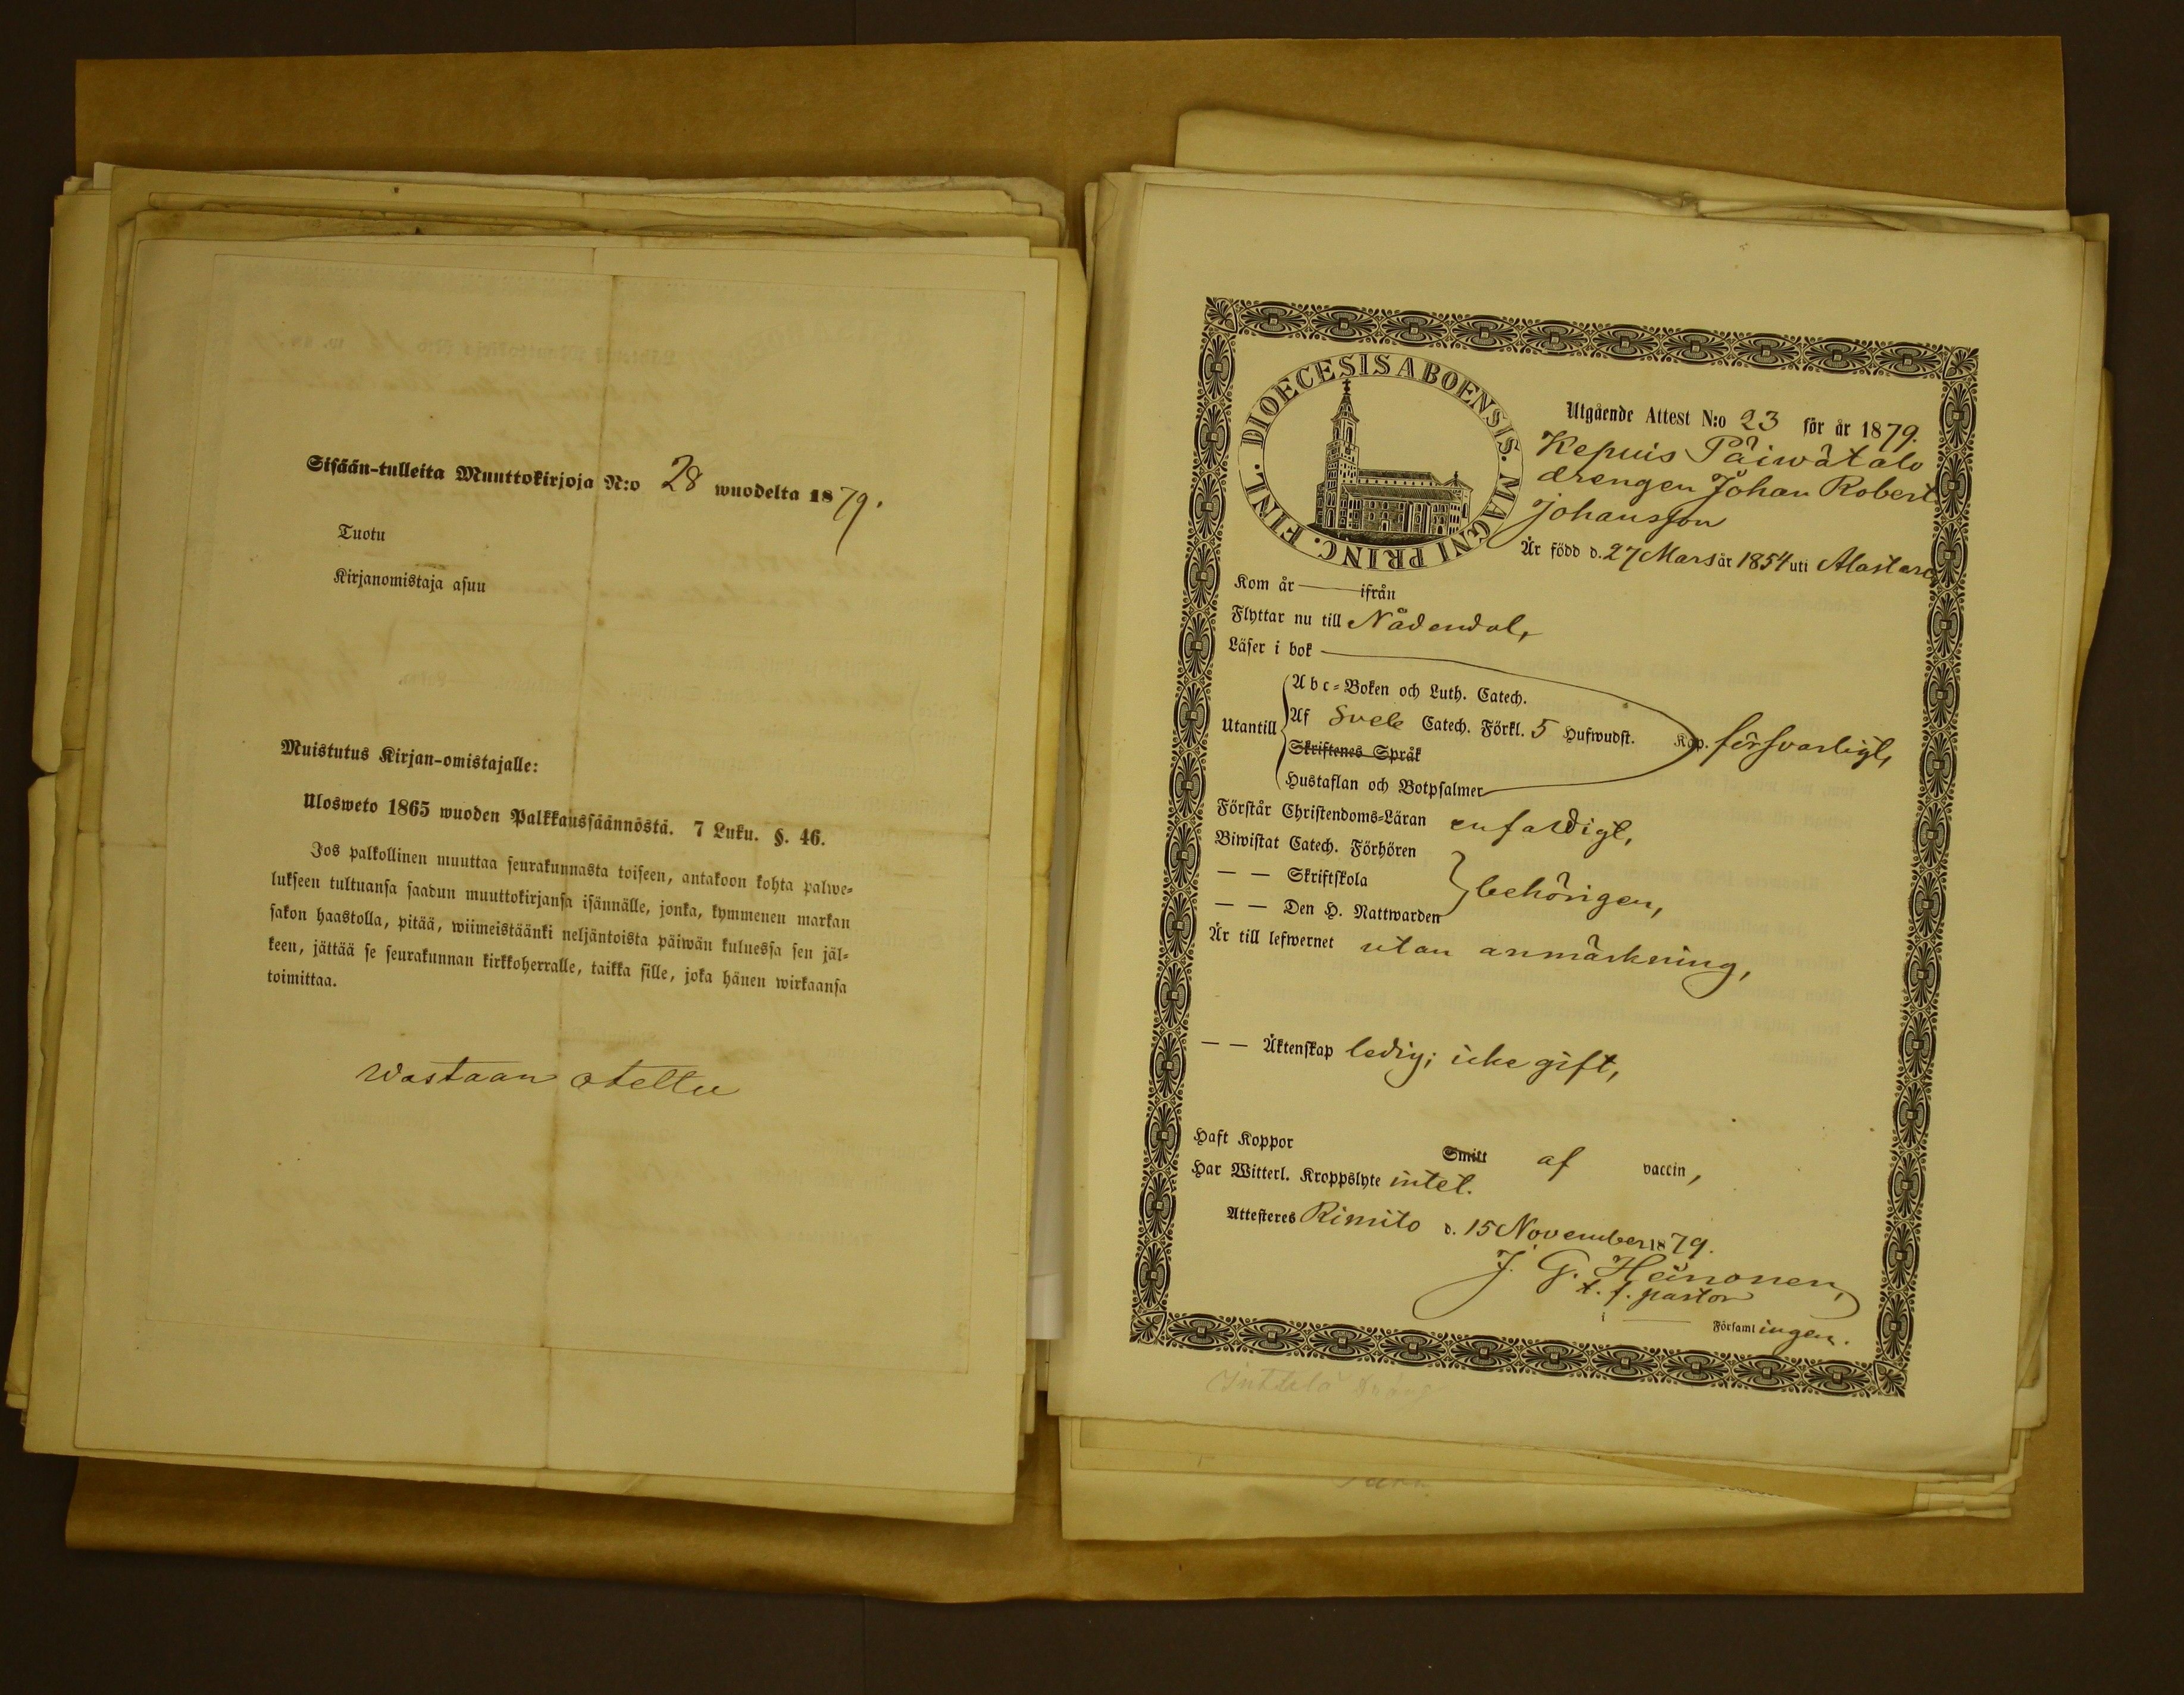 Sisään-tulleita Muuttokirjoja N:o 28 wuodelta 1879.
Tuotu
Kirjanomistaja asuu
Muistutus Kirjan-omistajalle:
Ulosweto 1865 wuoden Palkkaussäännöstä. 7 Luku. §. 46.
Jos palkollinen muuttaa seurakunnasta toiseen, antakoon kohta palwe-
lukseen tultuansa saadun muuttokirjansa isännälle, jonka, kymmenen markan
sakon haastolla, pitää, wiimeistäänki neljäntoista päiwän kuluessa sen jäl-
keen, jättää se seurakunnan kirkkoherralle, taikka sille, joka hänen wirkaansa
toimittaa.
Wastaan otettu
FINL. DIOECESIS ABOENSIS. MAGNI PRINC.
Utgående Attest N:o 23 för år 1879.
Kepuis Päiwätalo
drengen Johan Robert
Johansson
Är född d. 27 Mars år 1854 uti Alastaro
Kom år — ifrån
Flyttar nu till Nådendal,
Läser i bok
Abc-Boken och Luth. Catech.
Utantill Af Svebe Catech. Förkl. 5 Hufwudst. Kap. försvarligt,
Skriftenes Språk
Hustaflan och Botpsalmer
Förstår Christendoms-Läran enfaldigt,
Biwistat Catech. Förhören
— — Skriftskola behörigen,
— — Den H. Nattwarden
Är till lefwernet utan anmärkning,
— — Äktenskap ledig; icke gift,
Haft Koppor Smitt af vaccin,
Har Witterl. Kroppslyte intet.
Attesteres Rimito d. 15 November 1879.
J. G. Heinonen,
t. f. pastor
i — Församlingen.